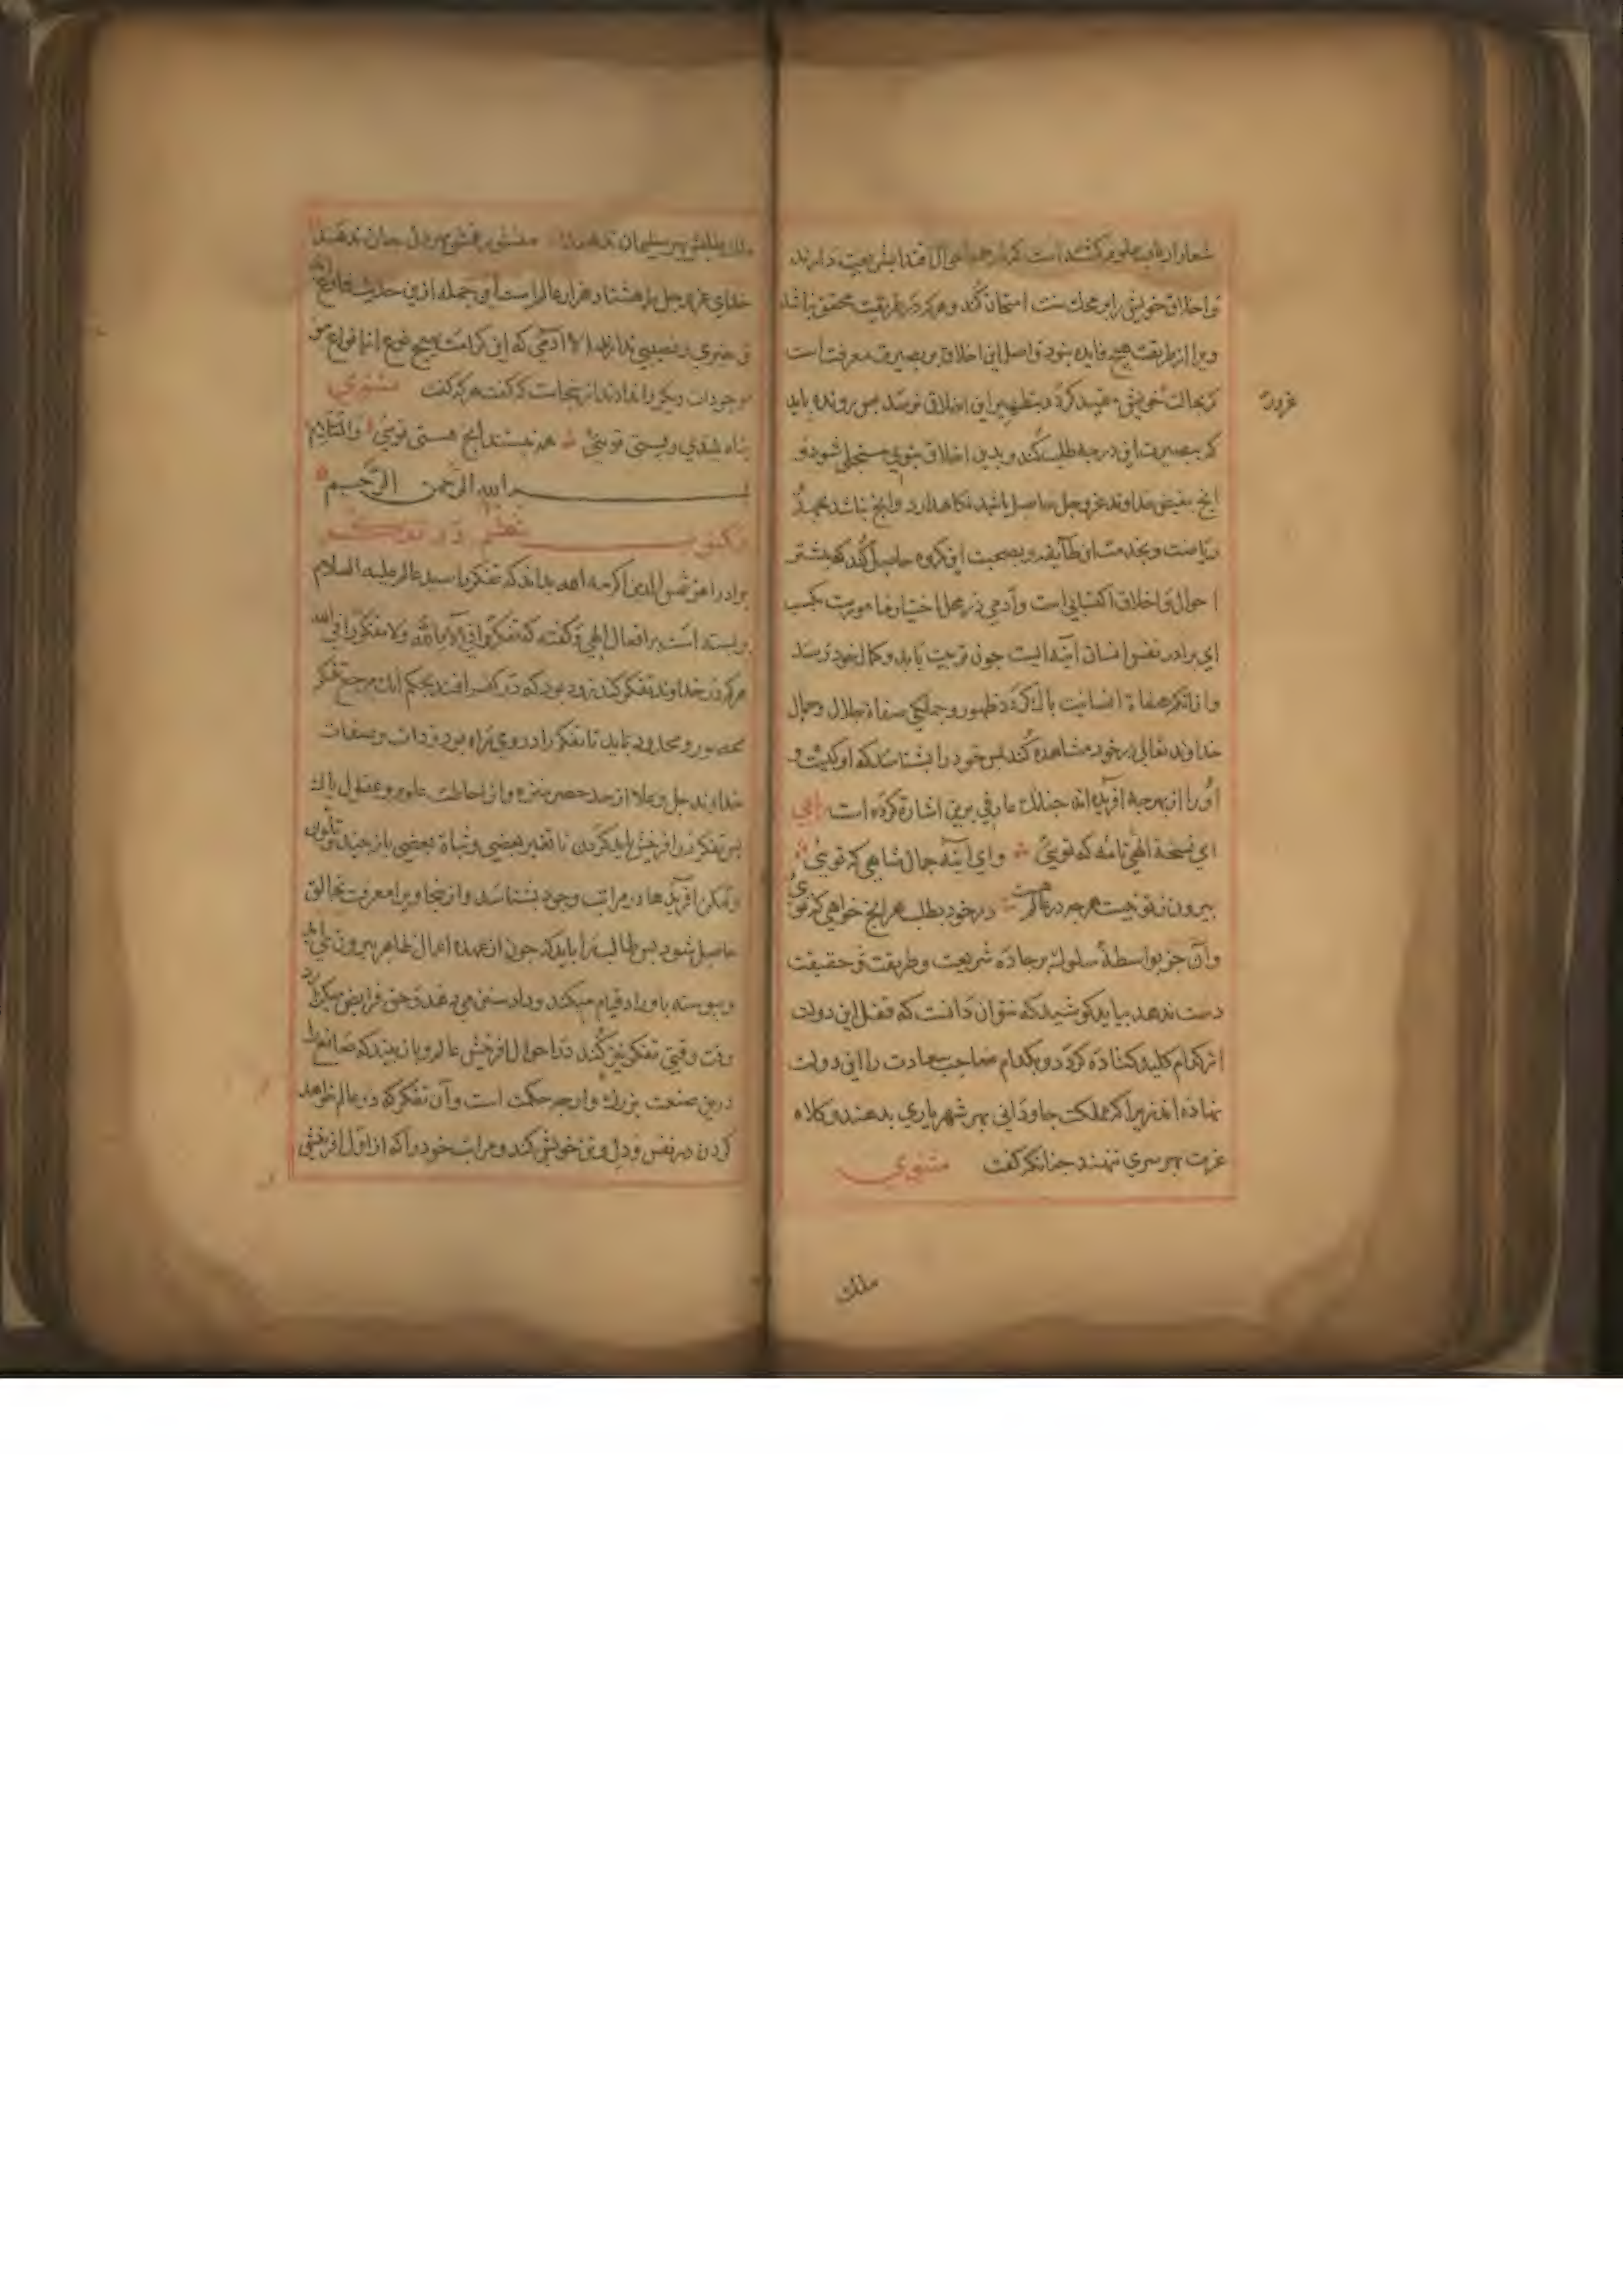 شعار ارباب علوم گشته است که در همه احوال اقتدا بشریعت دارند
و اخلاق خویش را بر محک سنت امتحان کند و هرکه در طریقت محقق نباشد
ویرا از طریقت هیچ فایده نبود و اصل این اخلاق بر بصیرت معرفت است
که بحالت خویش مقید کردد بتطهیر این اخلاق نرسد پس رونده باید
که ببصیرت این درجه طلب کند و بدین اخلاق نبوی متجلی شود و
انج بفیض خداوند عز و جل حاصل باشد نگاهدارد و انج نباشد بمجرد
ریاضت و بخدمت این طایفه و بصحبت این کروه حاصل کند که بیشتر
احوال و اخلاق اکتسابی است و آدمی در محل اختیار مامورست بکسب
ای برادر نفس انسان آینه ایست جون تربیت یابد و بکمال خود رسد
و از زنکار صفاة انسانیت پاک کردد ظهور جملکی صفاة جلال و جمال
خداوند تعالی در خود مشاهده کند پس خود را بشناسد که او کیست و
او را از بهر جه افریده اند جنانک عارفی برین اشارة کرده است
ای نسخه الهی نامه که توئی وای آینه جمال شاهی که توئی
بیرون ز تو نیست هرجه در عالم هست در خود بطلب هر انج خواهی که توئی
و آن جز بواسطهٔ سلوک بر جاده شریعت و طریقت و حقیقت
دست ندهد بباید کوشید که نتوان دانست که قفل این دولت
از کدام کلید کشاده کردد و بکدام صاحب سعادت را این دولت
نهاده اند زیرا که مملکت جاودانی بهر شهریاری ندهند و کلاه
عزت بهر سری ننهند جنانکه کفت مثنوی
ملک
ملک طلبش بهر سلیمان ندهند منشور غمش بهر دل و جان ندهند
خدای عز و جل را هشتاد هزار عالم است و جمله ازین حدیث فارغ اند
و خبری و نصیبی ندارند الا آدمی که این کرامت هیچ نوع از انواع مو
موجودات دیکر را نداده اند ازینجاست که کفت هرکه کفت مثنوی
پناه بلندی و پستی توئی همه نیستند انج هستی توئی والسلام
بسم الله الرحمن الرحیم
مکتوب در تفکر
برادر اعز شمس الدین اکرمه الله بداند که تفکر را سید عالم علیه السلام
بر بسته است بر افعال الهی و کفته که تفکروا فی آلاء الله ولا تفکروا فی الله
هرکه در خداوند تفکر کند زود بود که در کفر افتد بحکم آنک مرجع تفکر
محصور و محدود باید تا تفکر را در وی راه بود و ذات و صفات
خداوند جل و علا از حد حصر منزه و از احاطت علوم و عقول پاک
پس تفکر در افرینش باید کردن تا تغیر بعضی و ثباة بعضی باز بیند و تلون
و تمکن افریدها در مراتب وجود بشناسد و از انجا ویرا معرفت خالق
حاصل شود پس طالب را باید که جون از عهده اعمال ظاهر بیرون آمد
و پیوسته باوراد قیام میکند و داد سنن می دهد و حق فرایض میکزارد
وقت وقتی تفکر نیز کند در احوال افرینش عالم و باز بیند که صانع را
درین صنعت بزرک وارجه حکمت است و آن تفکر که در عالم خواهد
کردن در نفس و دل و تن خویش کند و مراتب خود را که از اول افرینش